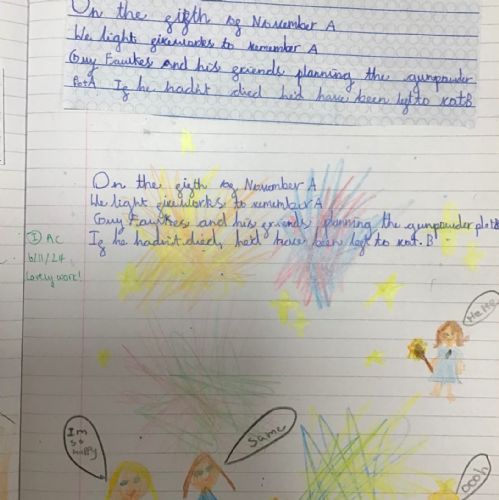 On the fifth of November A
We light fireworks to remember A
Guy Fawkes and his friends planning the gunpowder
PotA If he hadnt died he'd have been left to rot B
On the fifth of November A
We light fireworks to remember A
Guy Fawkes and his friends planning the gunpowder plot B
If he hadn't died, he'd have been left to rot. B
I AC
6/11/24
Lovely work!
HeHe
Im
so
Happy
Same
oooh